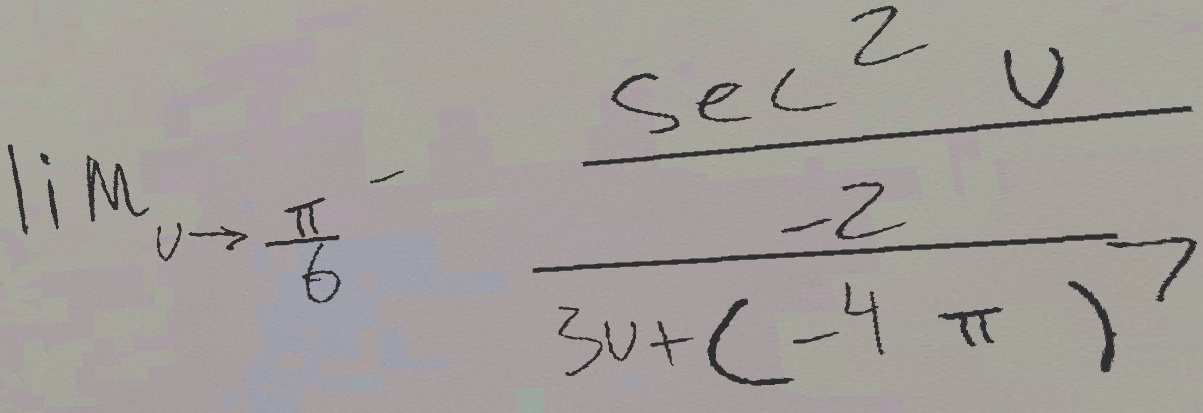 \lim_{v \to \frac{\pi}{6}^{-}} \frac{\sec^{2} v}{\frac{-2}{3v+(-4\pi)^{7}}}